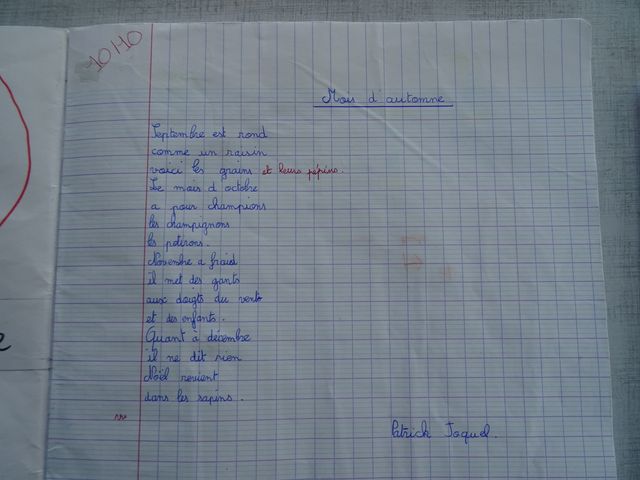 10/10
Mois d'automne
Septembre est rond
comme un raisin
voici les grains et leurs pépins.
Le mois d octobre
a pour champions
les champignons
les potirons.
Novembre a froid
il met des gants
aux doigts du vent
et des enfants.
Quant à décembre
il ne dit rien
Noël revient
dans les sapins.
Patrick Joquel.